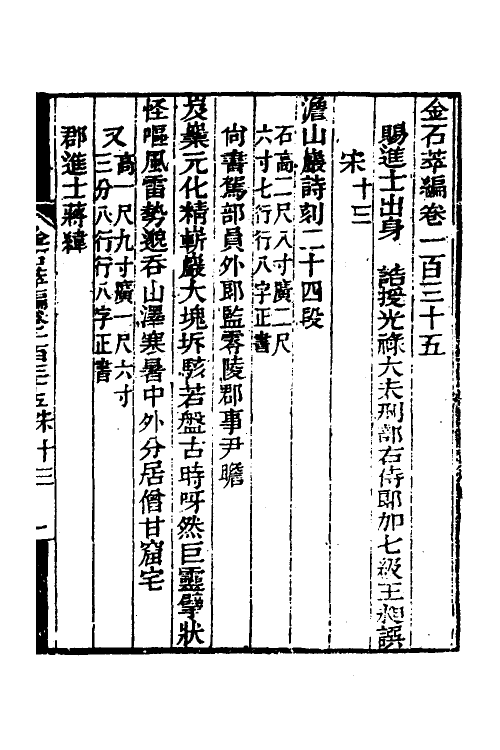 金石萃編卷一百三十五
賜進士出身 誥授光祿大夫刑部右侍郎加七級王昶譔
宋十三
澹山巖詩刻二十四段
石高二尺八寸廣二尺
六寸七行行八字正書
尙書駕部員外郎監零陵郡事尹瞻
炭㷼元化精嶄巖大塊坼駭若盤古時呀然巨靈擘狀
怪嘔風雷勢邈吞山澤寒暑中外分居僧甘窟宅
又
高一尺九寸廣一尺六寸
三分八行行八字正書
郡進士蔣緯
金石萃編卷一百三十五 宋十三 一